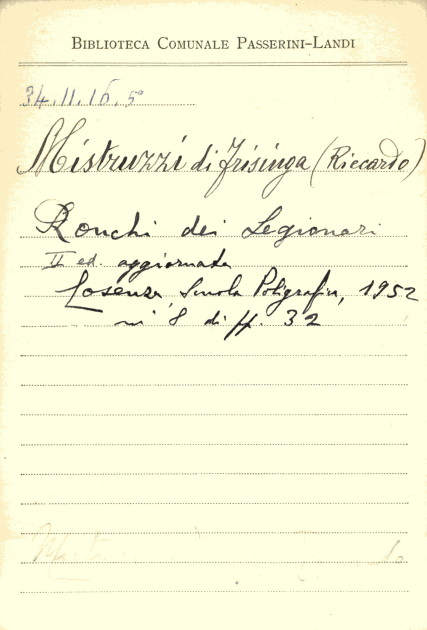 BIBLIOTECA COMUNALE PASSERINI-LANDI
34.11.16.5º
Mistruzzi di Frisinga (Riccardo)
Ronchi dei Legionari
II ed. aggiornata
Cosenza, Scuola Poligrafica, 1952
in 8 di pp. 32